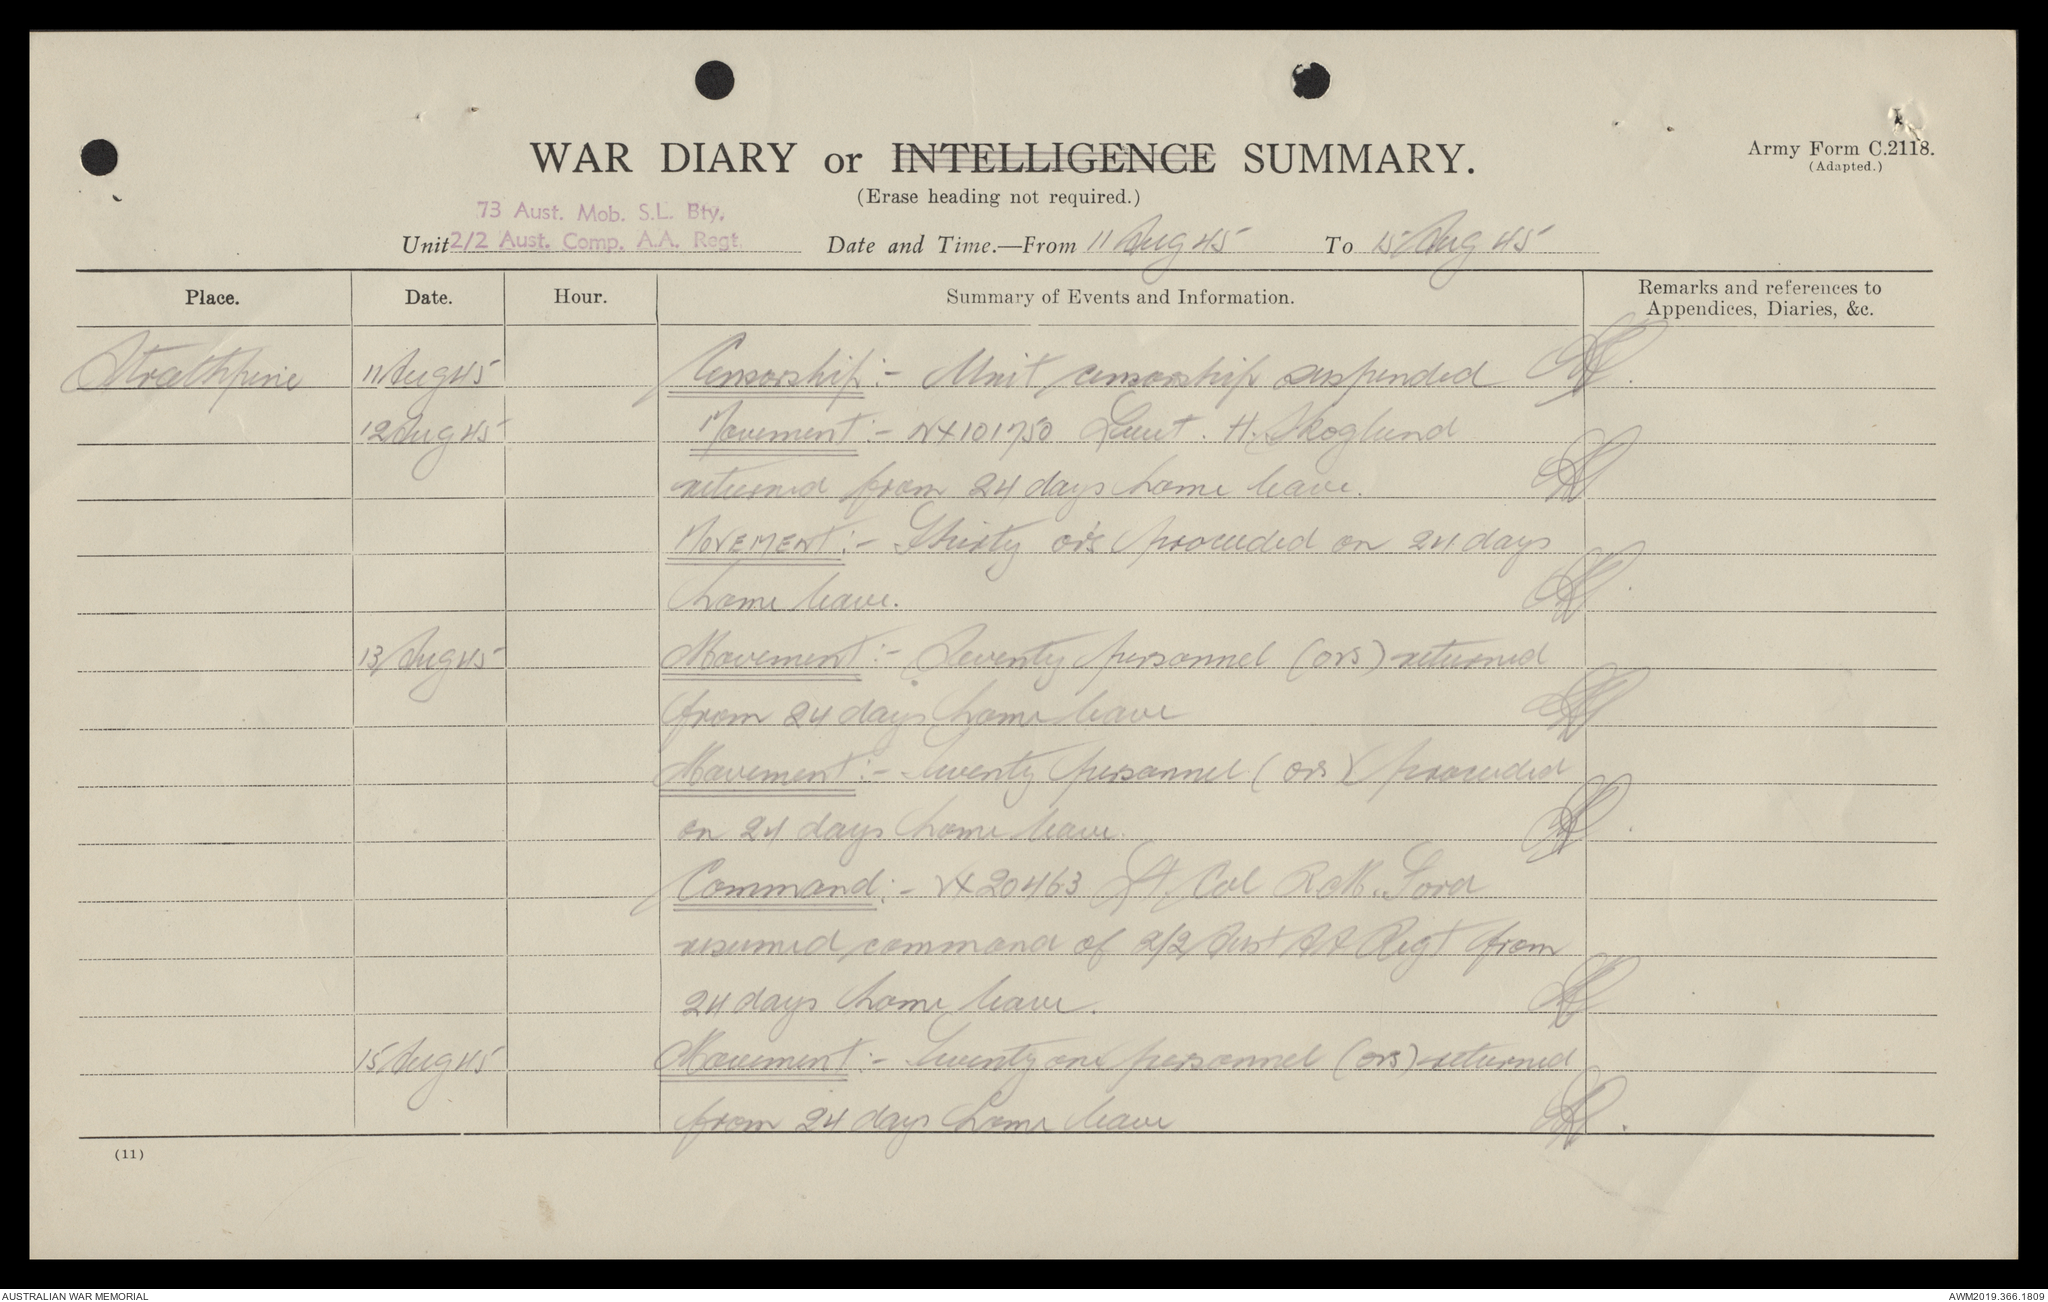 WAR DIARY or INTELLIGENCE SUMMARY.
Army Form C.2118.
(Adapted.)
(Erase heading not required.)
73 Aust. Mob. S.L. Bty.
Unit 2/2 Aust. Comp. A.A. Regt. Date and Time.—From 11 Aug 45 To 15 Aug 45
Place. Date. Hour. Summary of Events and Information. Remarks and references to
Appendices, Diaries, &c.
Strathpine 11 Aug 45 Censorship:- Unit censorship suspended
12 Aug 45 Movement:- NX101750 Lieut. H. Skoglund
returned from 24 days home leave.
MOVEMENT:- Thirty ors proceeded on 24 days
home leave.
13 Aug 45 Movement:- Seventy personnel (ors) returned
from 24 days home leave
Movement:- Twenty personnel (ors) proceeded
on 24 days home leave.
Command:- VX20463 Lt. Col Ford
resumed command of 2/2 Aust AA Regt from
24 days home leave.
15 Aug 45 Movement:- Twenty one personnel (ors) returned
from 24 days home leave
(11)
AUSTRALIAN WAR MEMORIAL
AWM2019.366.1809